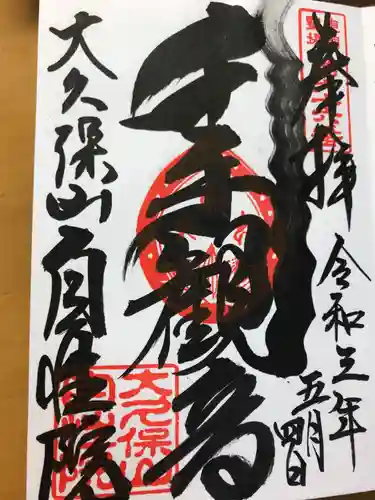 奉拝
令和三年
五月
四日
千手観音
大久保山自性院
大久保山